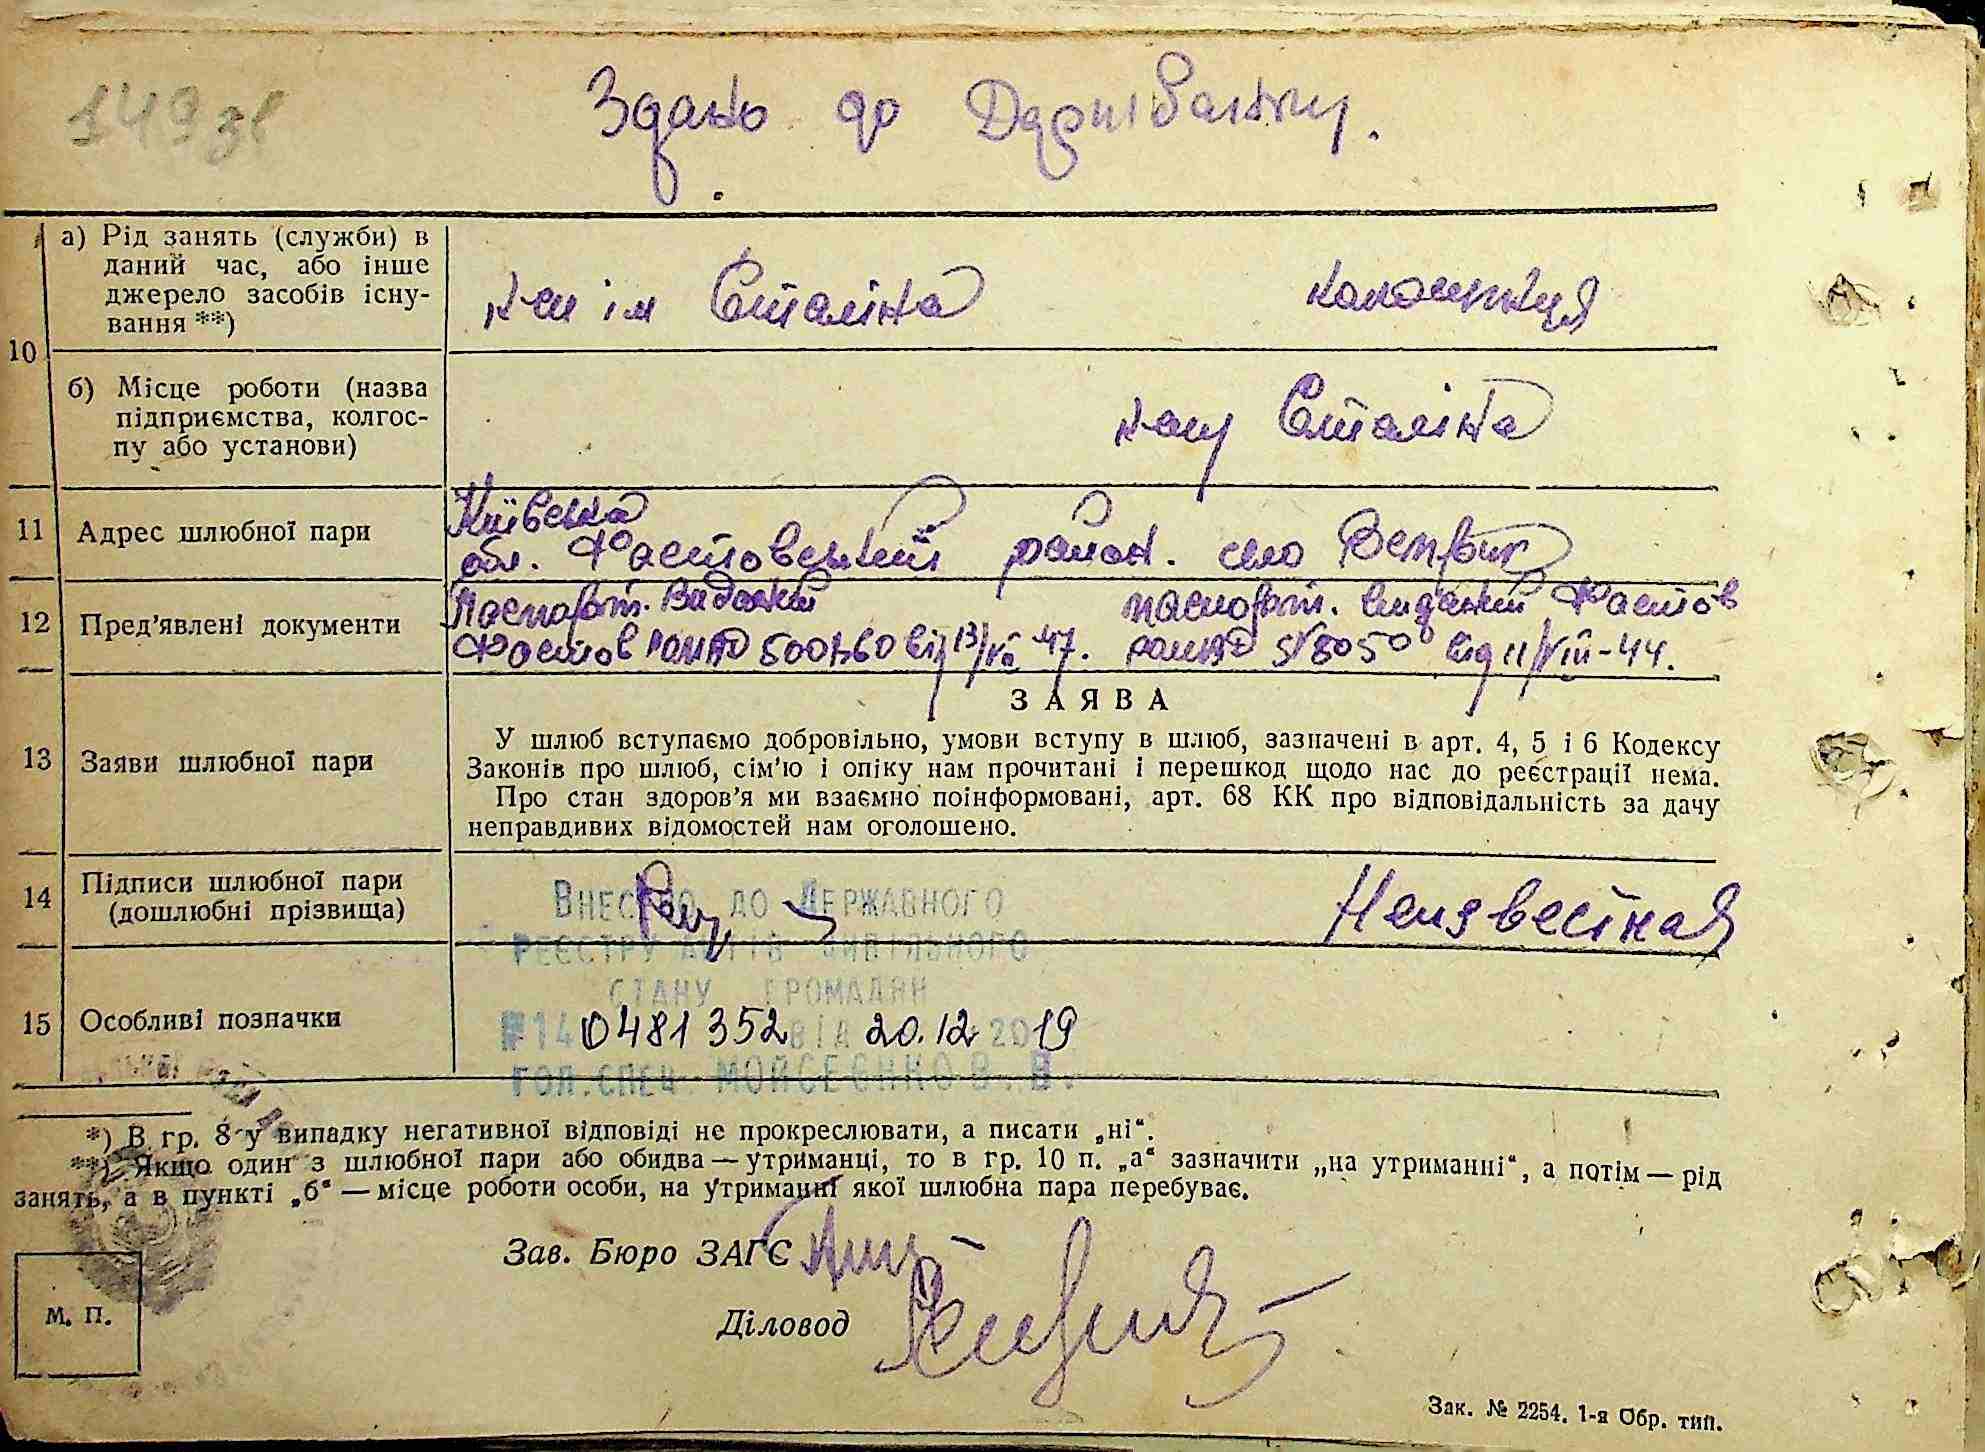 149 зв
Здано до Держбанку.
10
а) Рід занять (служби) в
даний час, або інше
джерело засобів існу-
вання **)
ім Сталіна
колгоспниця
б) Місце роботи (назва
підприємства, колгос-
пу або установи)
Сталіна
11
Адрес шлюбної пари
Київська
обл. Фастовський район. село Веприк
12
Пред'явлені документи
Паспорт. Виданий
Фастов від 13/ 47.
паспорт. виданий Фастов
від 11/VIII-44.
ЗАЯВА
13
Заяви шлюбної пари
У шлюб вступаємо добровільно, умови вступу в шлюб, зазначені в арт. 4, 5 і 6 Кодексу
Законів про шлюб, сім'ю і опіку нам прочитані і перешкод щодо нас до реєстрації нема.
Про стан здоров'я ми взаємно поінформовані, арт. 68 КК про відповідальність за дачу
неправдивих відомостей нам оголошено.
14
Підписи шлюбної пари
(дошлюбні прізвища)
Неизвестная
Внесено до Державного
реєстру актів цивільного
стану громадян
15
Особливі позначки
№14 0481352 від 20.12 2019
гол.спец Мойсеєнко В.В.
*) В гр. 8 у випадку негативної відповіді не прокреслювати, а писати „ні“.
**) Якщо один з шлюбної пари або обидва — утриманці, то в гр. 10 п. „а“ зазначити „на утриманні“, а потім — рід
занять, а в пункті „б“ — місце роботи особи, на утриманні якої шлюбна пара перебуває.
Зав. Бюро ЗАГС
Діловод
М. П.
Зак. № 2254. 1-я Обр. тип.